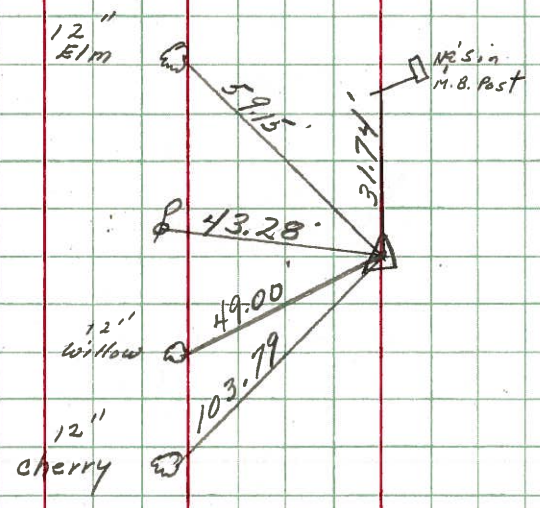 12"
Elm
59.15'
31.74'
NE's in
M.B. Post
43.28'
49.00'
12"
Willow
103.79
12"
cherry